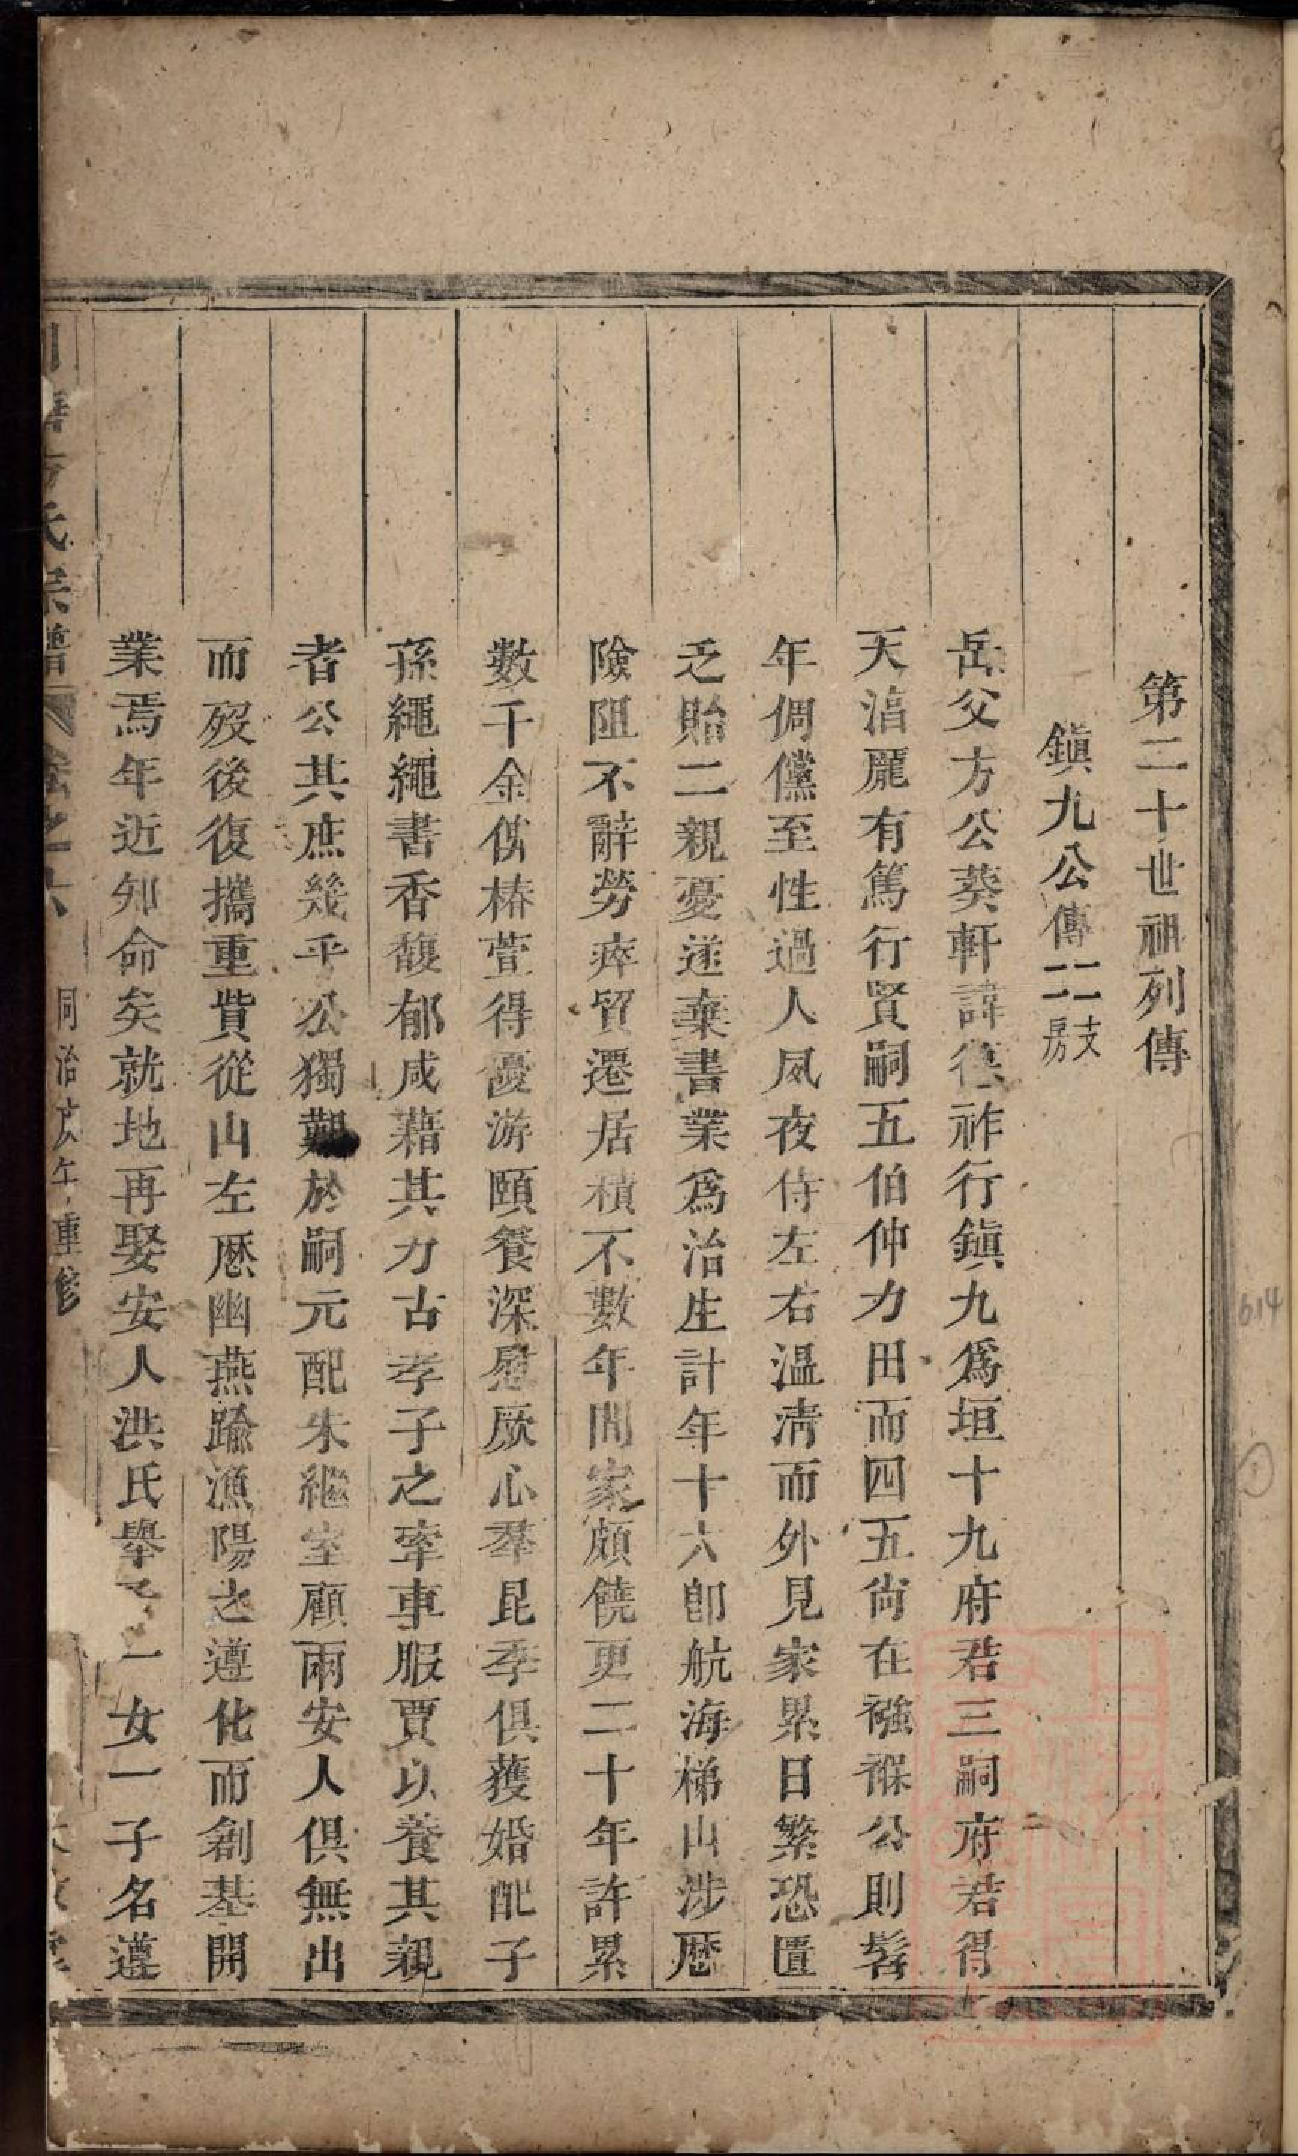 第二十世祖列傳
鎮九公傳二支二房
岳父方公葵軒諱德祚行鎮九爲垣十九府君三嗣府君得
天滀龎有篤行賢嗣五伯仲力田而四五尙在襁褓公則髫
年倜儻至性過人夙夜侍左右溫凊而外見家累日繁恐匱
乏貽二親憂遂棄書業爲治生計年十六卽航海梯山涉歷
險阻不辭勞瘁貿遷居積不數年間家頗饒更二十年許累
數千金俏椿萱得優游頤養深慰厥心羣昆季俱獲婚配子
孫繩繩書香馥郁咸藉其力古孝子之牽車服賈以養其親
者公其庶幾乎公獨艱於嗣元配朱繼室顧兩安人俱無出
而歿後復攜重貲從山左歷幽燕踰漁陽之遵化而創基開
業焉年近知命矣就地再娶安人洪氏舉子一女一子名遵
方氏宗譜 卷之六 同治庚午重修